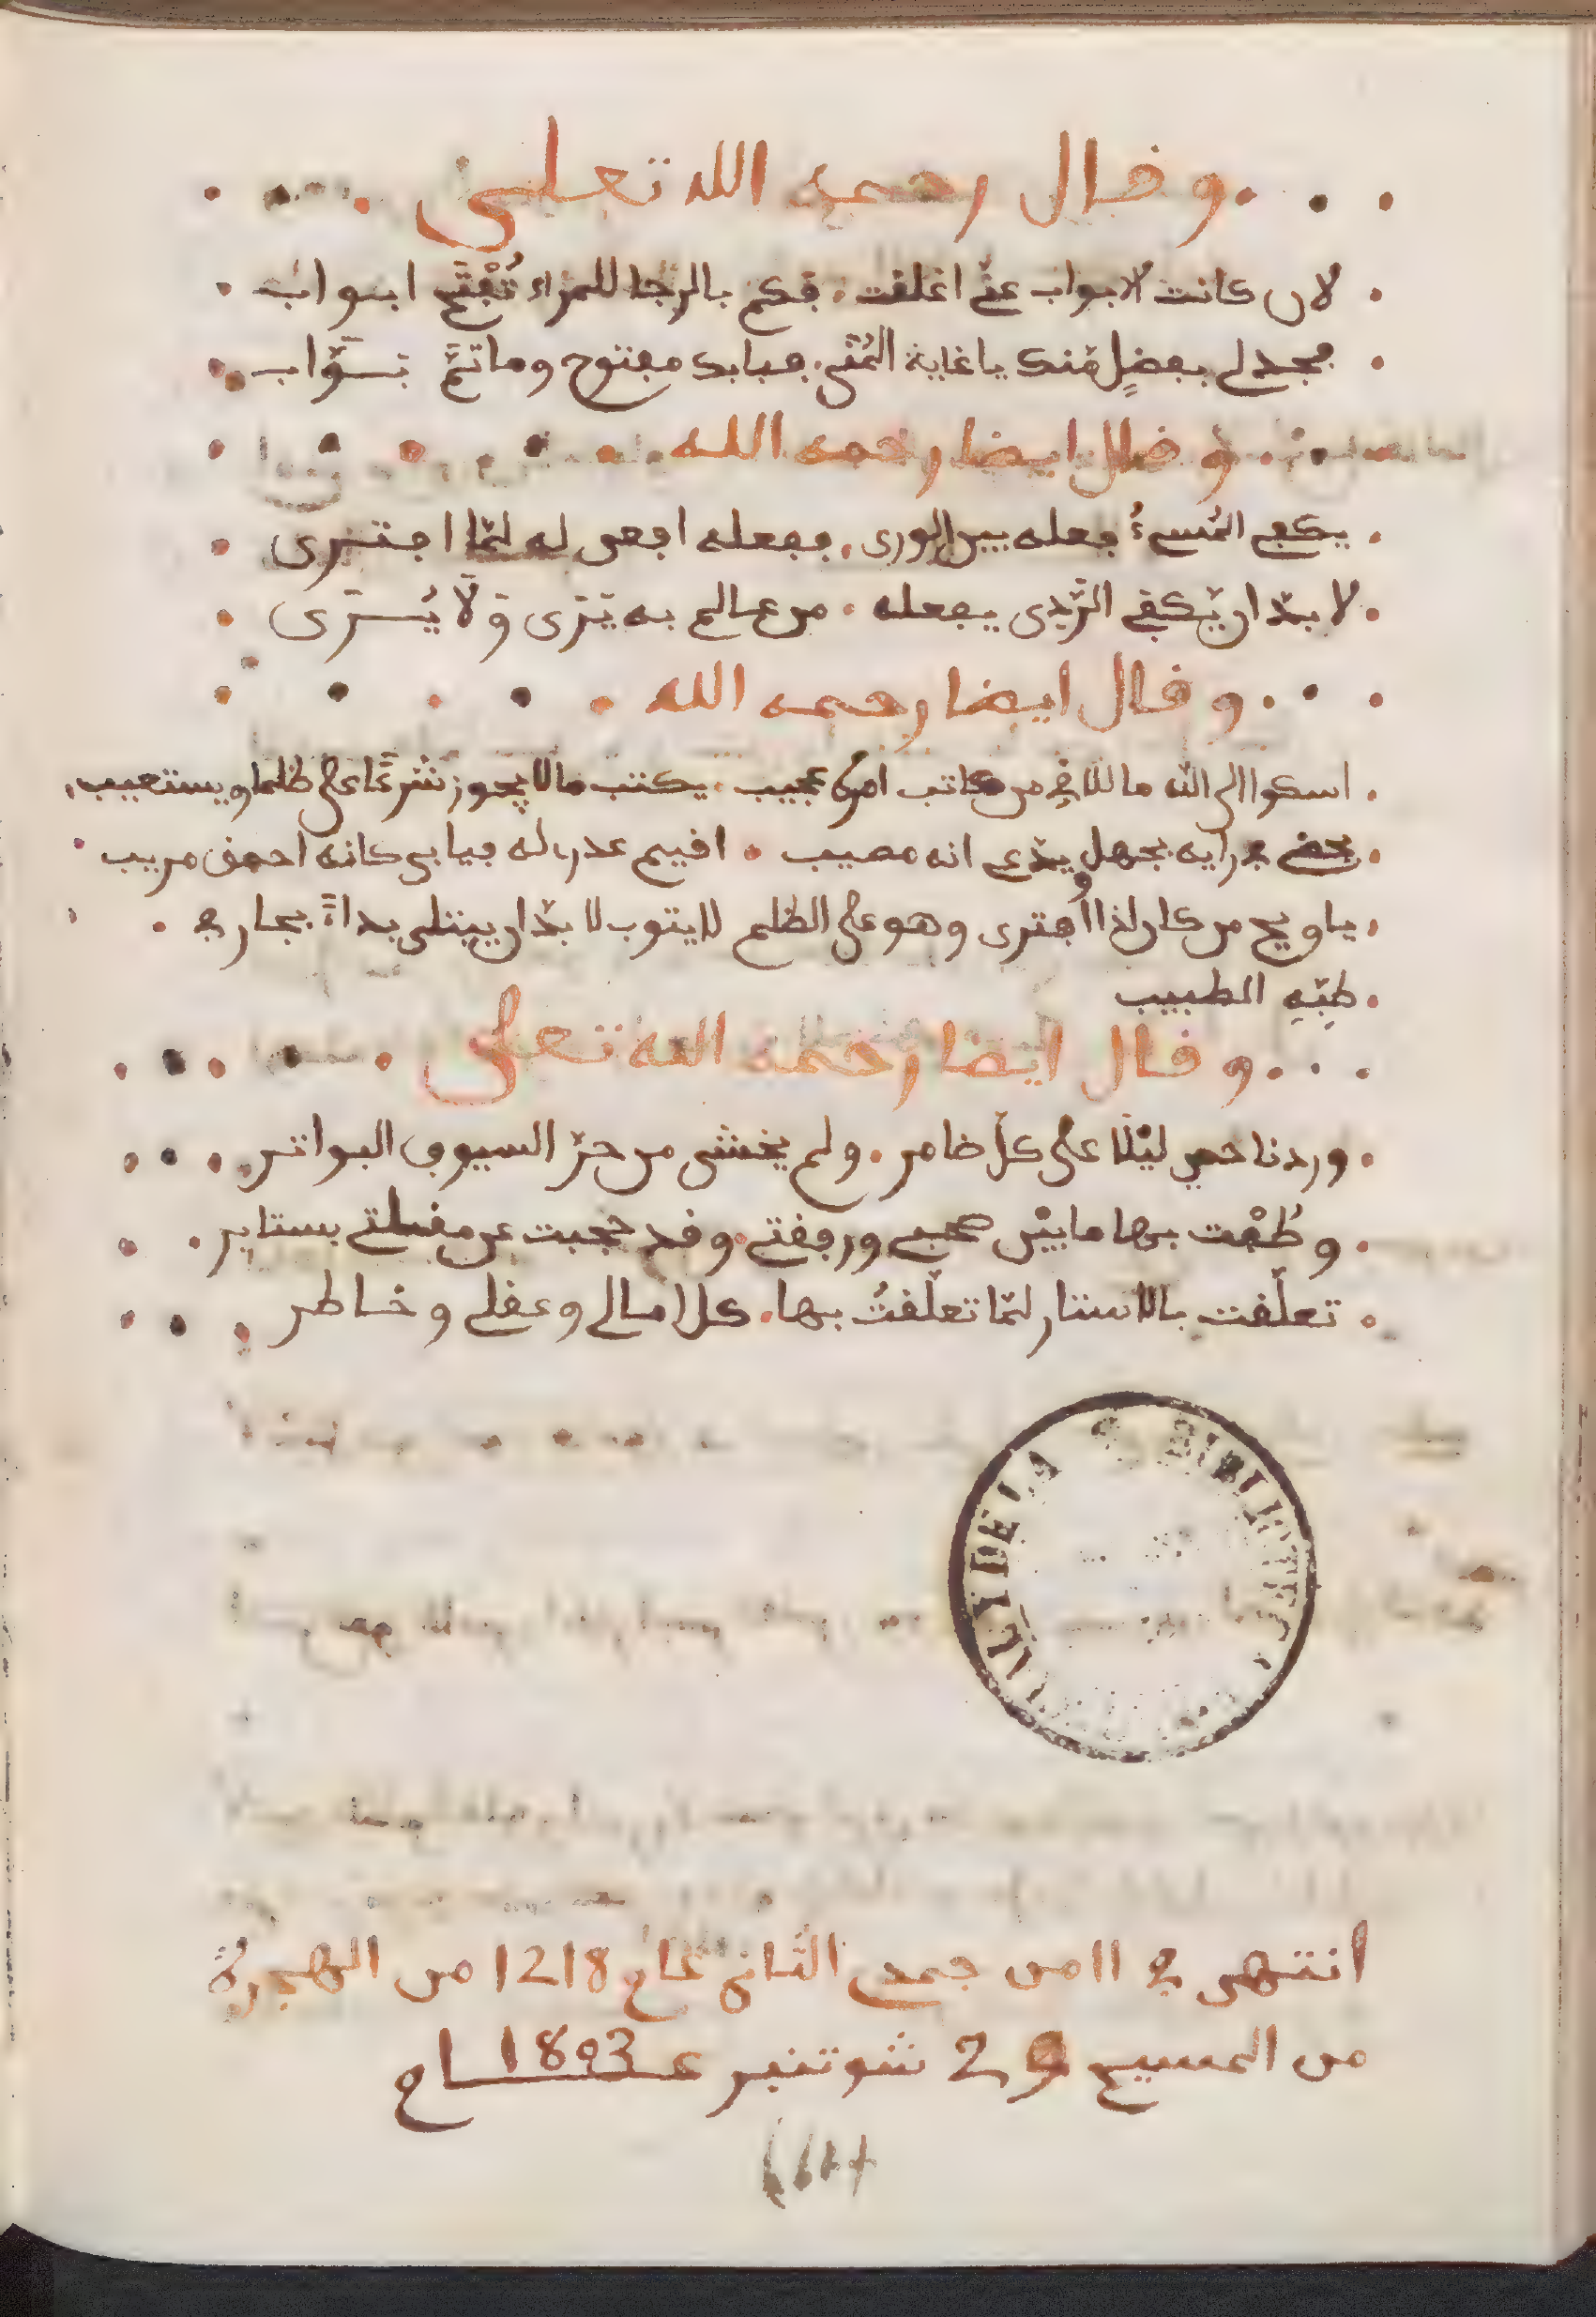 وقال رحمه الله تعلى
لان كانت الابواب عنّي اغلقت . فكم بالرجا للمراء تُفْتَح ابواب
فجد لي بفضلٍ منك يا غاية المُنى . فبابك مفتوح وما ثَمَّ بَوَّاب
وقال ايضا رحمه الله
يكفي المُسيءُ فعله بين الورى . ففعله افعى له لمّا افترى
لا بدّ ان يّكفي الرّدى بفعله . من عالم به يَرى وَلَا يُرى
وقال ايضا رحمه الله
اسكوا الى الله ما نلافي من كاتب امره عجيب . يكتب ما لا يجوز شرعًا على ظلما ويستعيب
يدّعي انه مصيب . اقيم عدرا له فيابى كانه احمق مريب
ياويح من كان اذا افترى وهو على الظلم لا يتوب لا بدّ ان يبتلى بداءً يحار في
طبّهِ الطبيب
وقال ايضا رحمه الله تعلى
وردنا حمى ليْلًا على كلّ ضامر . ولم يخشى من حرّ السيوف البواتر
وطُفْت بها ما بيْن صحبي ورفقتي . وقد حجبت عن مقلتي بستاير
تعلّقت بالاستار لمّا تعلّقتُ بها . كل امالي وعقلي وخاطر
BIBL
DE LA
انتهى في 11 من جمدى الثّاني عام 1218 من الهجرة
من المسيح 29 شوتنبر عام 1803